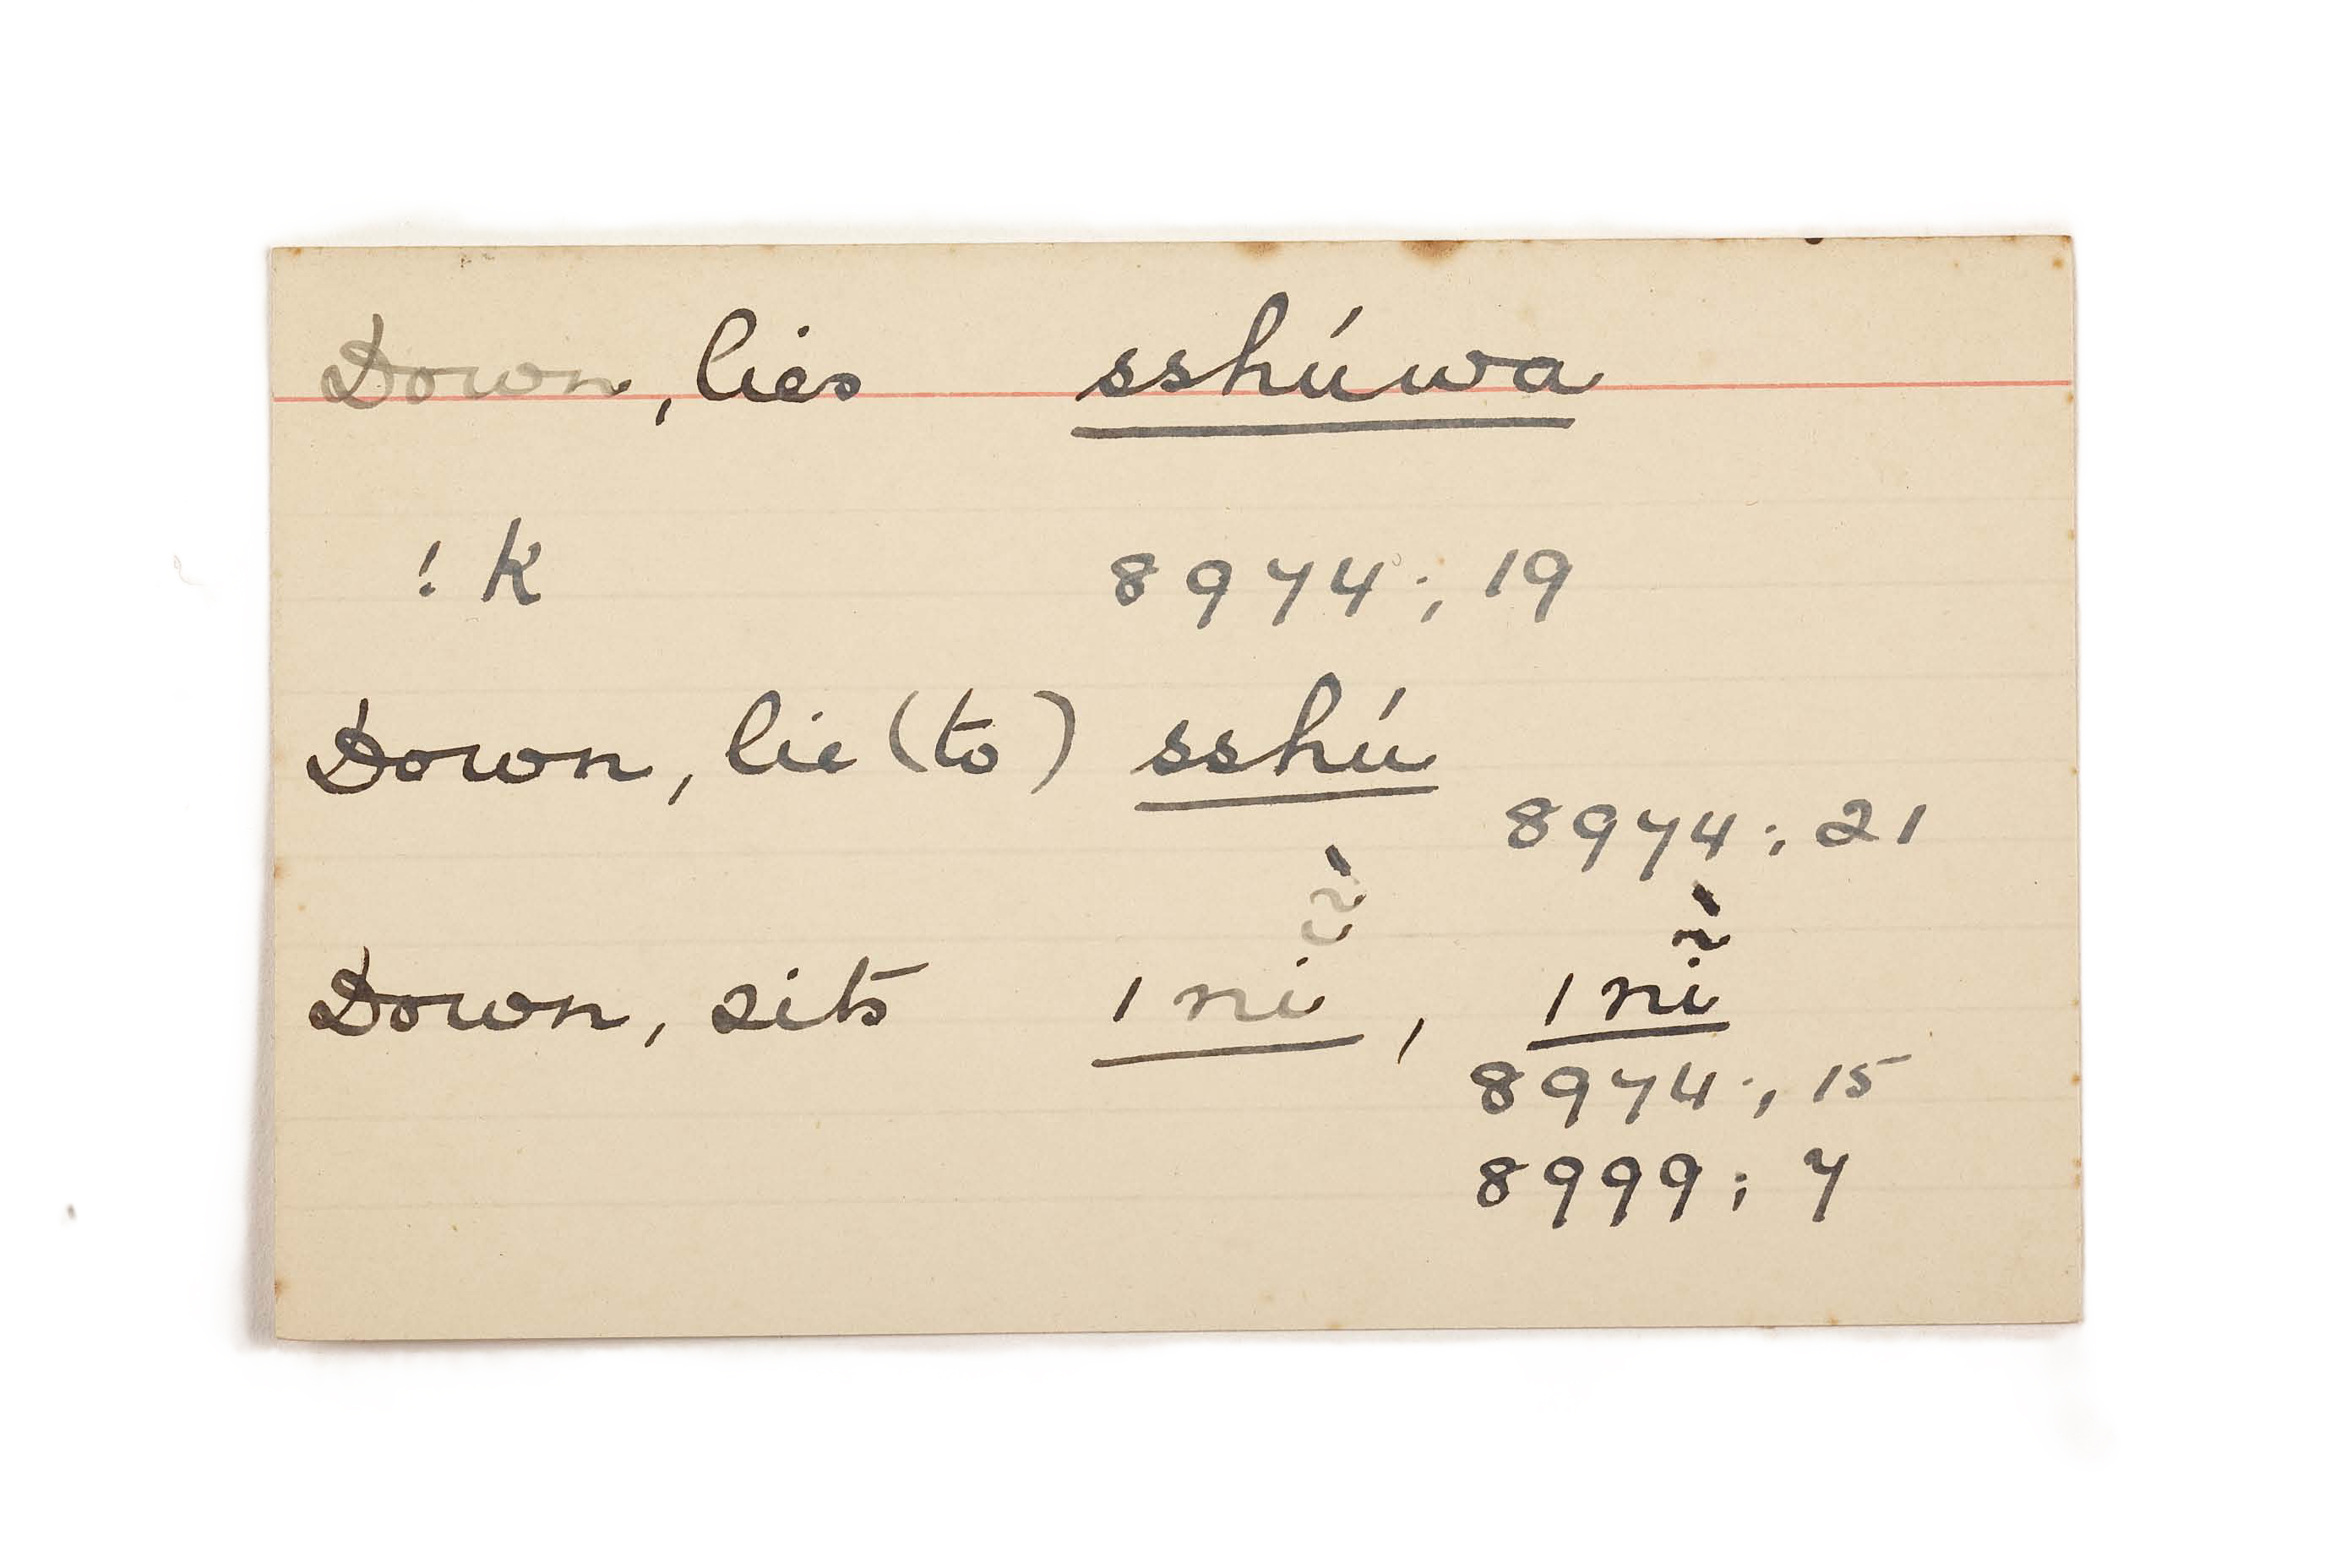 Down, lies sshúwa
! k 8974:, 19
Down, lie (to) sshú
8974:, 21
Down, sits /nĩ̆̀, /nĩ̀
8974:, 15
8999; 7